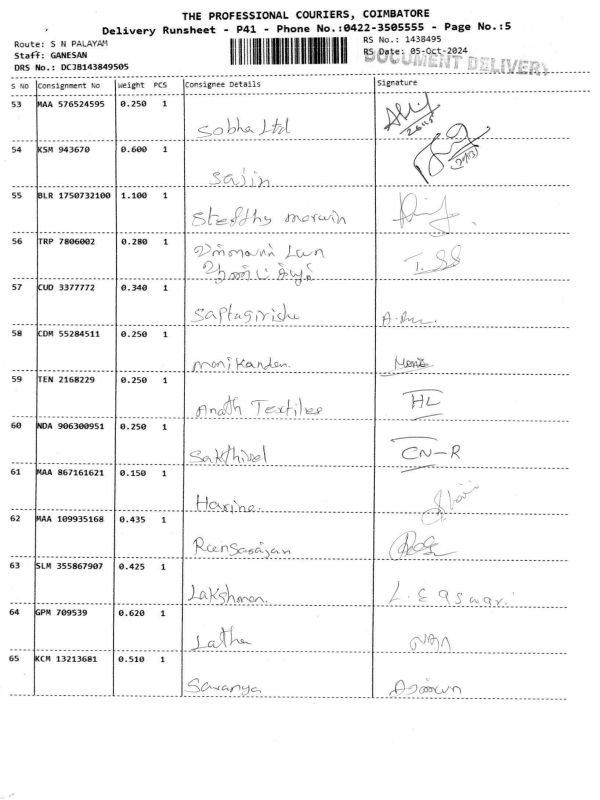 THE PROFESSIONAL COURIERS, COIMBATORE
Delivery Runsheet - P41 - Phone No.:0422-3505555 - Page No.:5
Route: S N PALAYAM
RS No.: 1438495
Staff: GANESAN
RS Date: 05-Oct-2024
DRS No.: DCJB143849505
DOCUMENT DELIVERY
S No Consignment No Weight PCS Consignee Details Signature
53 MAA 576524595 0.250 1
Sobha Ltd
54 KSM 943670 0.600 1
Sajin
55 BLR 1750732100 1.100 1
56 TRP 7806002 0.280 1
57 CUD 3377772 0.340 1
58 CDM 55284511 0.250 1
Manikanden. Mani
59 TEN 2168229 0.250 1
Textiles HL
60 NDA 906300951 0.250 1
Sakthivel CN-R
61 MAA 867161621 0.150 1
Harine.
62 MAA 109935168 0.435 1
63 SLM 355867907 0.425 1
Lakshman. L. Easwari
64 GPM 709539 0.620 1
Latha லதா
65 KCM 13213681 0.510 1
Saranya